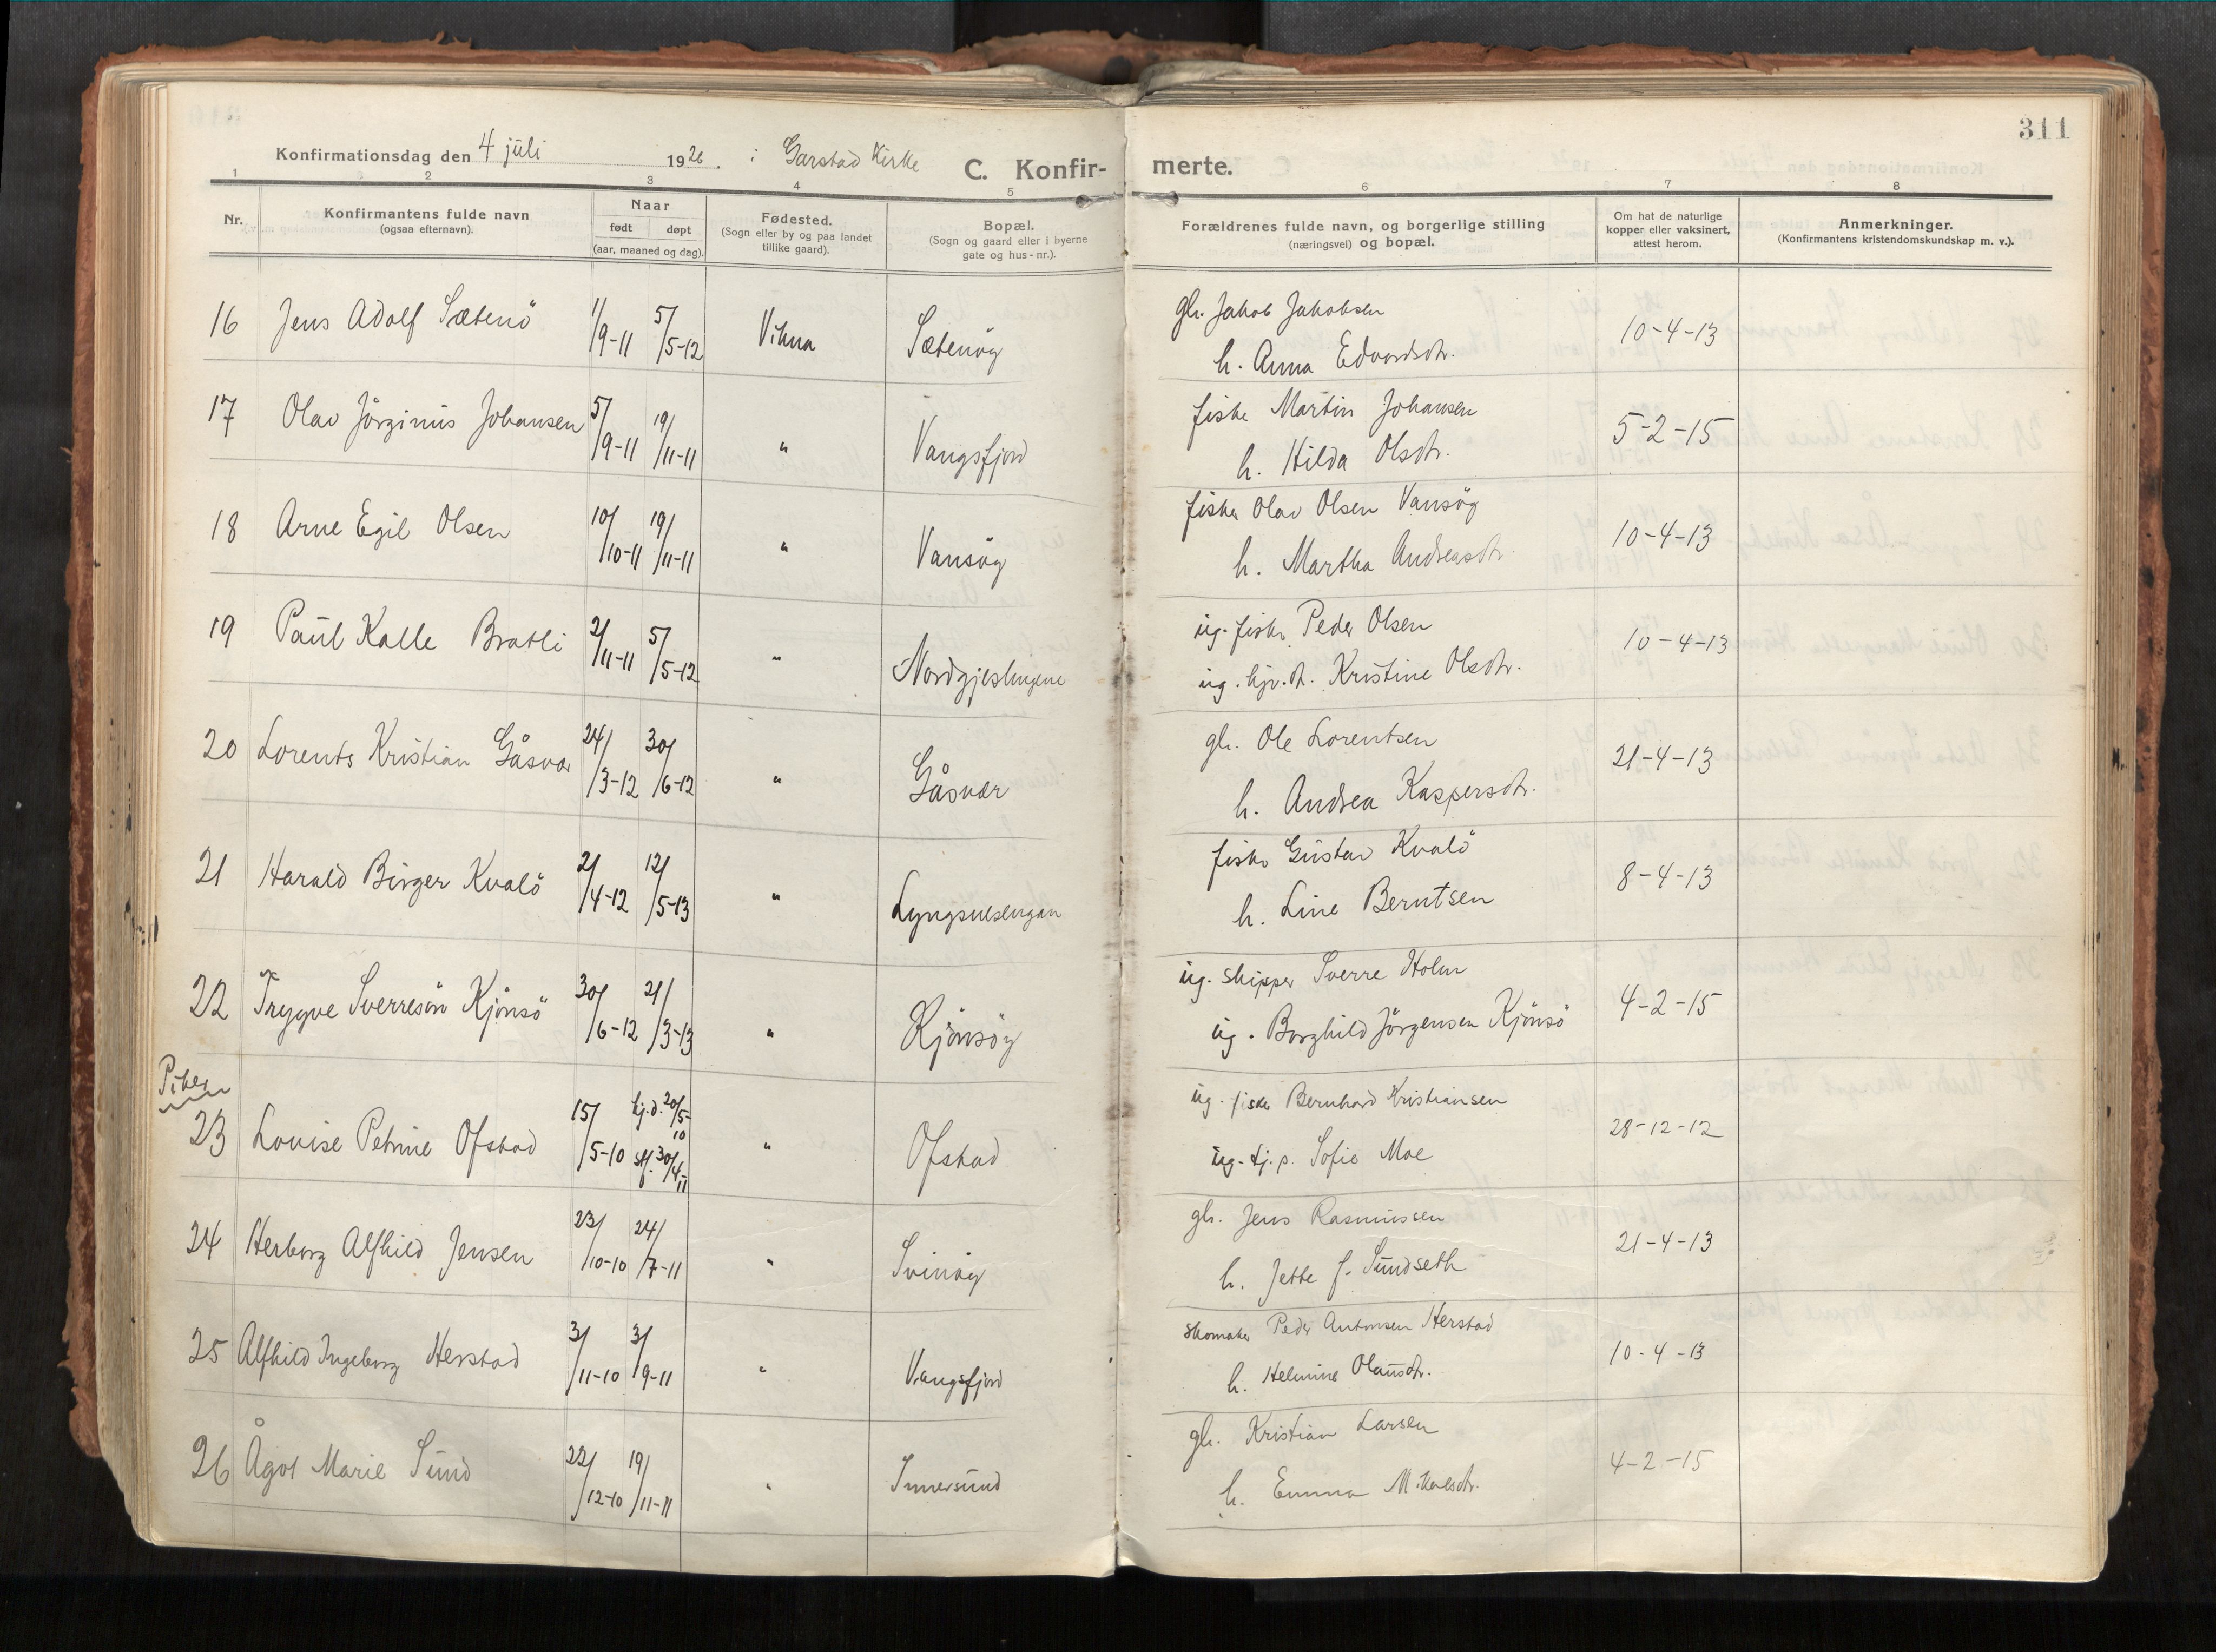 311
Konfirmationsdag den 4 juli 1926. i Garstad Kirke C. Konfir- merte.
1 2 3 4 5 6 7 8
Nr. Konfirmantens fulde navn (ogsaa efternavn). Naar født døpt (aar, maaned og dag). Fødested. (Sogn eller by og paa landet tillike gaard). Bopæl. (Sogn og gaard eller i byerne gate og hus-nr.). Forældrenes fulde navn, og borgerlige stilling (næringsvei) og bopæl. Om hat de naturlige kopper eller vaksinert, attest herom. Anmerkninger. (Konfirmantens kristendomskundskap m. v.).
16 Jens Adolf Sætenö 1/9-11 5/5-12 Vikna Sætenöy gbr. Jakob Jakobsen
h. Anna Edvardsdtr. 10-4-13
17 Olav Jörginus Johansen 5/9-11 19/11-11 " Vangsfjord fisker Martin Johansen
h. Hilda Olsdtr. 5-2-15
18 Arne Egil Olsen 10/10-11 19/11-11 " Vansöy fisker Olav Olsen Vansöy
h. Martha Andreasdtr. 10-4-13
19 Paul Kalle Bratli 2/11-11 5/5-12 " Nordgjeslingene ug. fisker Peder Olsen
ug. Kristine Olsdtr. 10-4-13
20 Lorents Kristian Gåsvær 24/3-12 30/6-12 " Gåsvær gbr. Ole Lorentsen
h. Andrea Kaspersdtr. 21-4-13
21 Harald Birger Kvalö 2/4-12 12/5-13 " Lyngsnesengan fisker Gustav Kvalö
h. Line Berntsen 8-4-13
22 Trygve Sverresön Kjönsö 30/6-12 2/3-13 " Kjönsöy ug. skipper Sverre Holm
ug. Borghild Jörgensen Kjönsö 4-2-15
Piker
23 Louise Petrine Ofstad 15/5-10 hj.d. 20/5-10 stf. 30/4-11 " Ofstad ug. fisker Bernhard Kristiansen
ug. tj.p. Sofie Moe 28-12-12
24 Herborg Alfhild Jensen 23/10-10 24/7-11 " Svinöy gbr. Jens Rasmussen
h. Jette f. Sundseth 21-4-13
25 Alfhild Ingeborg Herstad 3/11-10 3/9-11 " Vangsfjord skomaker Peder Antonsen Herstad
h. Helmine Olausdtr. 10-4-13
26 Ågot Marie Sund 22/12-10 19/11-11 " Innersund gbr. Kristian Larsen
h. Emma Mikalsdtr. 4-2-15